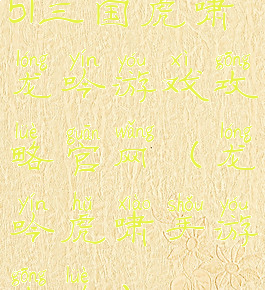 51三国虎啸
lóng yín yóu xì gōng
龙吟游戏攻
lüè guān wǎng lóng
略官网(龙
yín hǔ xiào shǒu yóu
吟虎啸手游
gōng lüè